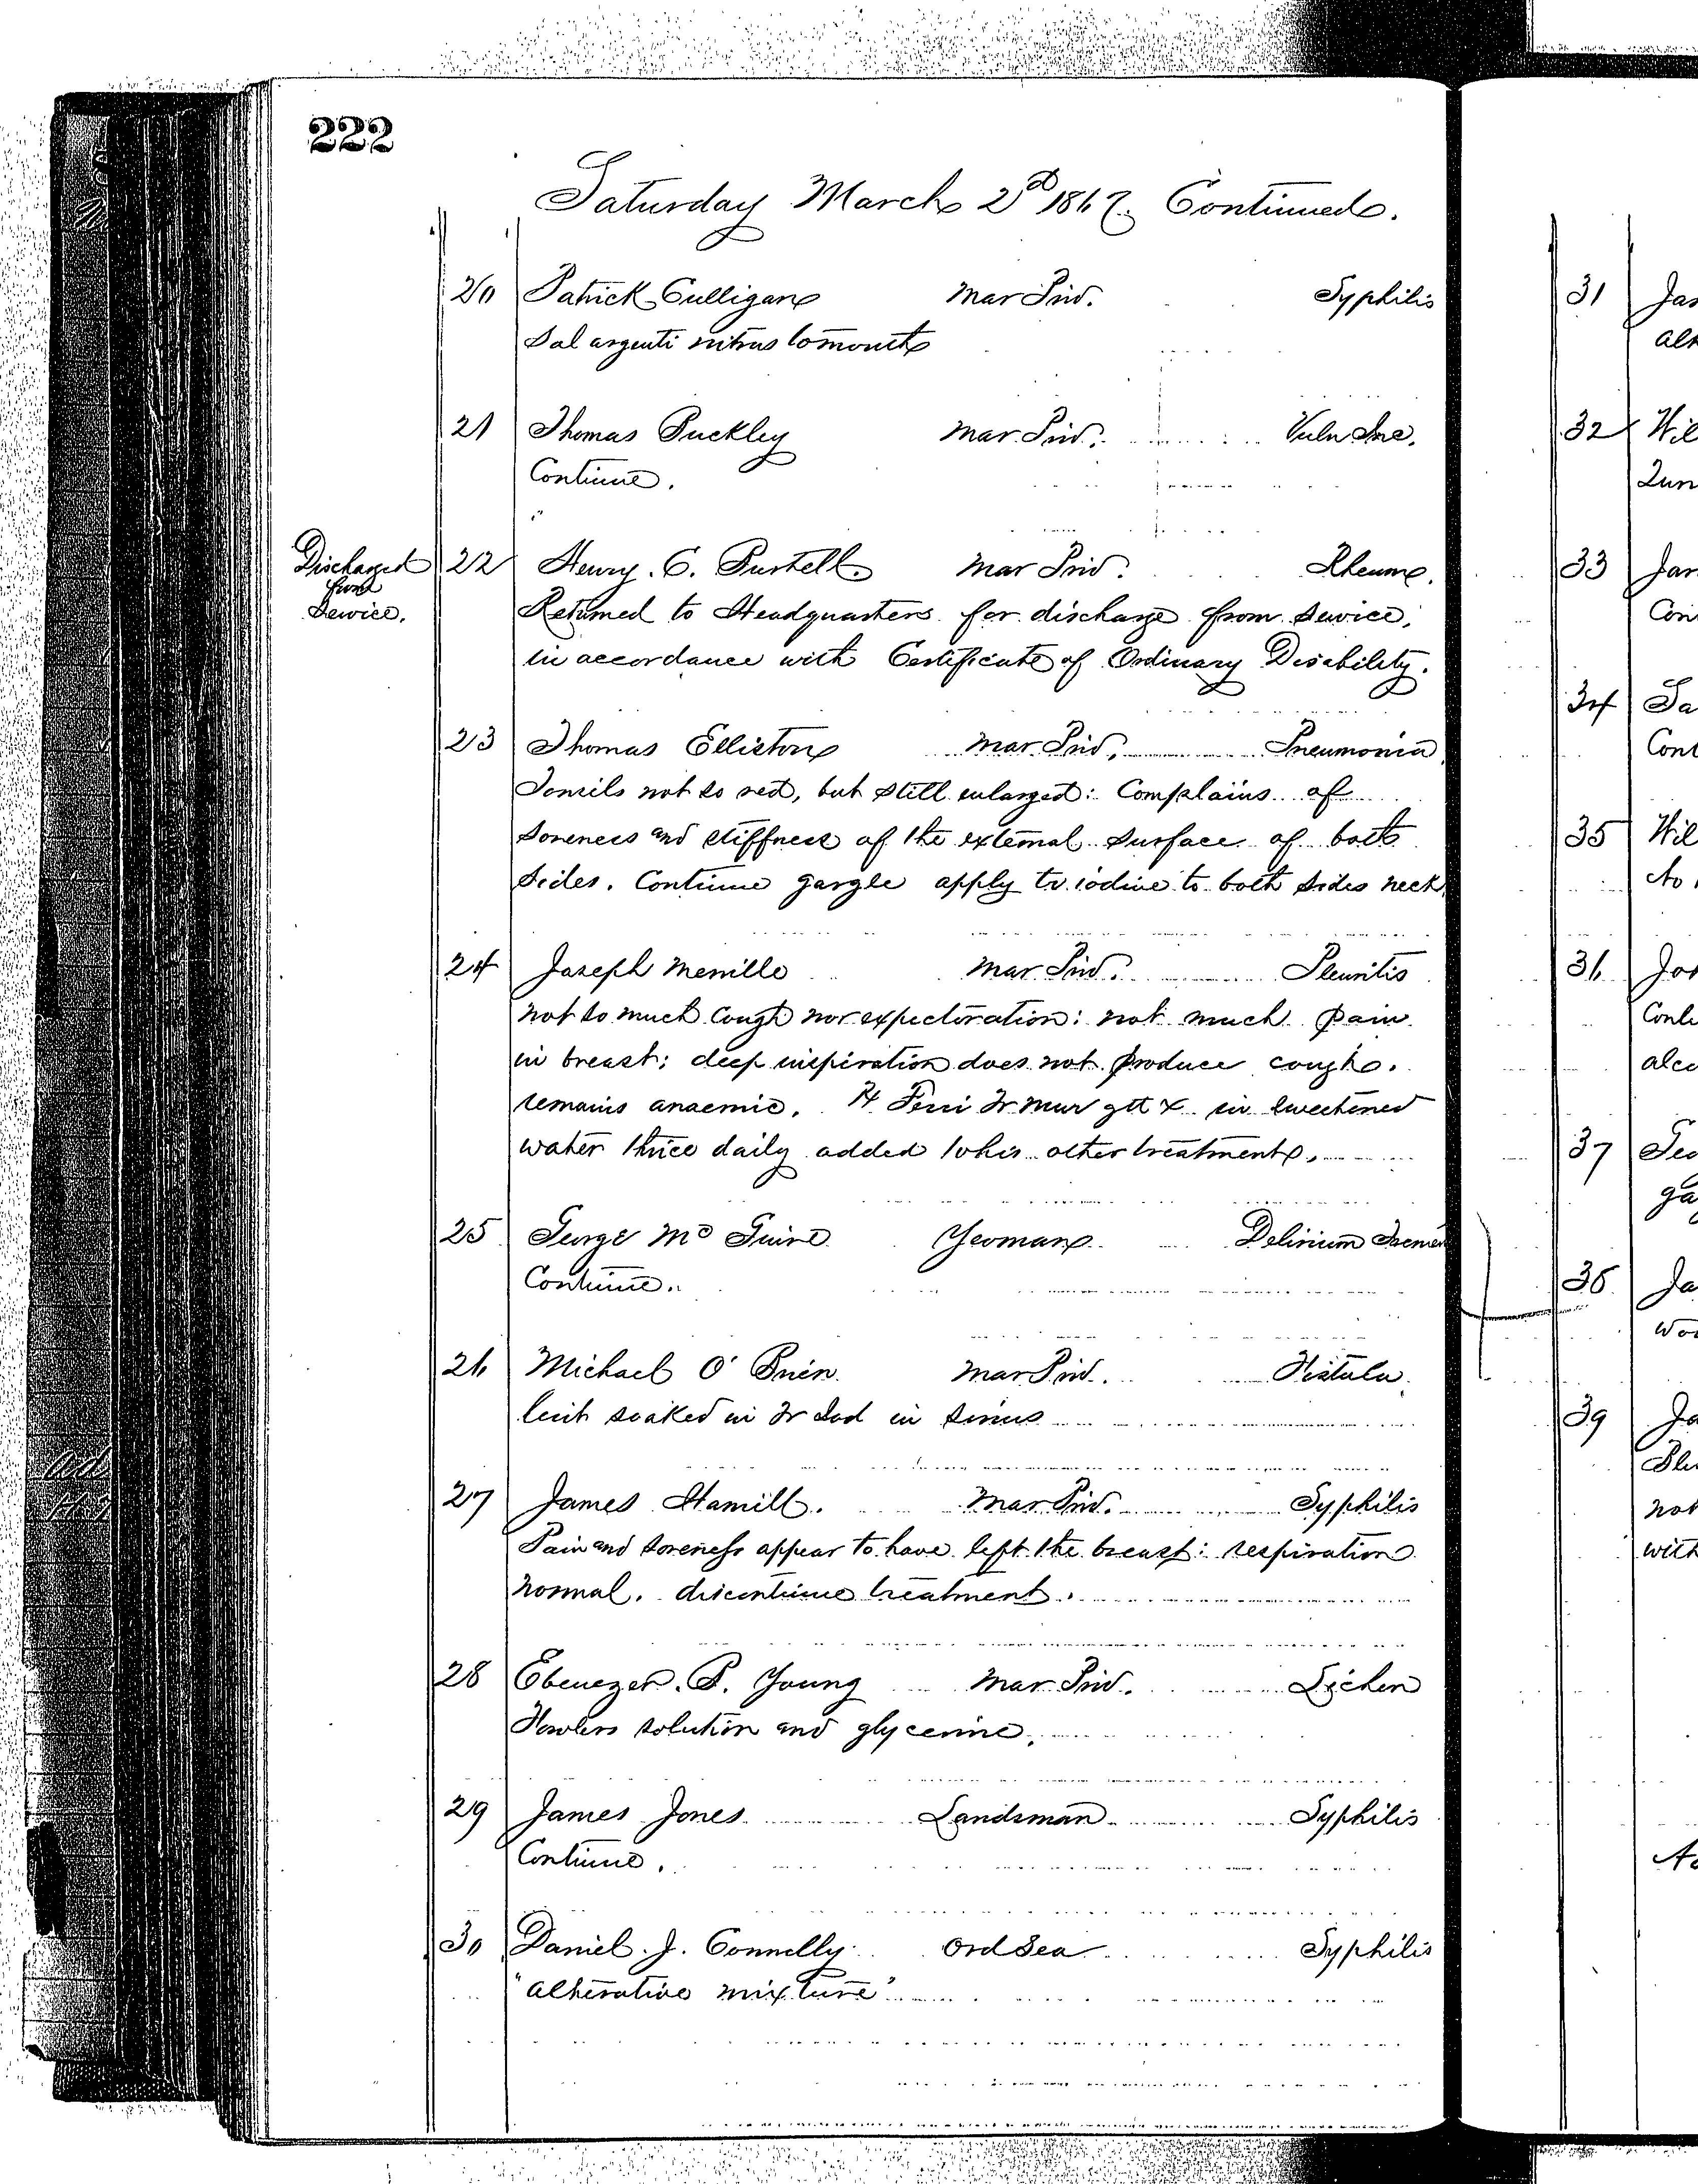 222
Saturday March 2d 1867. Continued.
20 Patrick Culligan Mar Priv. Syphilis
Sal argenti nitras to mouth
21 Thomas Buckley Mar. Priv. Vuln Inc.
Continue.
Discharged from Service.
22 Henry. C. Purtell. Mar Priv. Rheum.
Returned to Headquarters for discharge from service,
in accordance with Certificate of Ordinary Disability.
23 Thomas Elliston Mar. Priv. Pneumonia
Tonsils not so red, but still enlarged: Complains of
soreness and stiffness of the external surface of both
sides. Continue gargle apply tr. iodine to both sides neck
24 Joseph Merrille Mar. Priv. Pleuritis
not so much cough nor expectoration: not much pain
in breast: deep inspiration does not produce cough.
remains anaemic. ℞ Ferri Tr Mur gtt X in sweetened
water thrice daily added to his other treatment.
25 George McGuire Yeoman Delirium Tremen
Continue.
26 Michael O'Brien Mar Priv. Fistula.
lint soaked in Tr Iod in sinus
27 James Hamill. Mar. Priv. Syphilis
Pain and soreness appear to have left the breast: respiration
normal. discontinue treatment.
28 Ebenezer. P. Young Mar Priv. Lichen
Fowlers solution and glycerine.
29 James Jones. Landsman. Syphilis
Continue.
30 Daniel. J. Connelly Ord Sea Syphilis
"alterative mixture"
31 Jas
32 Wil
33 Jan
Con
34
Cont
35 Wil
36 Jos
37
38 Ja
39 Ja
not
with